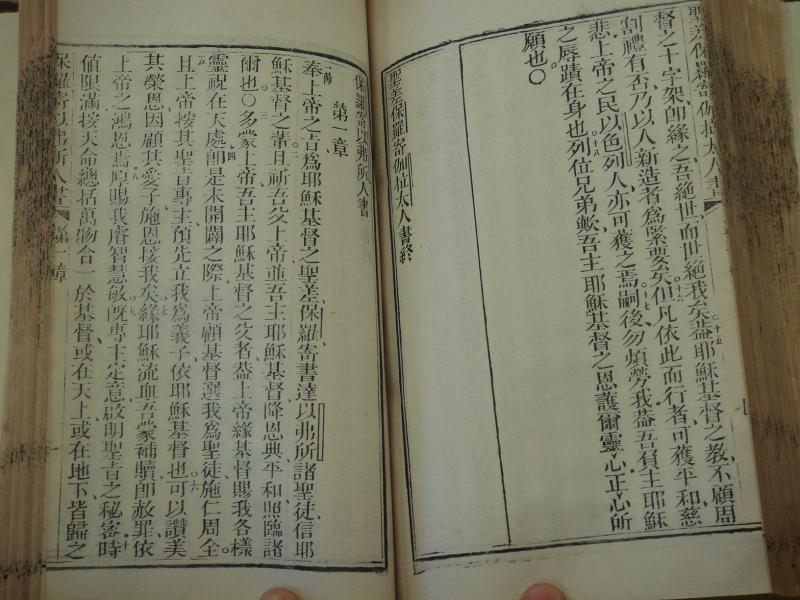 聖差保羅寄伽拉太人書
督之十字架、卽緣之、吾絕世、而世絕我矣。十五蓋耶穌基督之敎、不顧周
割禮有否、乃以人新造者爲緊要矣。十六但凡依此而行者、可獲平和慈
悲、上帝之民以色列人、亦可獲之焉。十七嗣後、勿煩勞我、蓋吾負主耶穌
之辱蹟在身也。十八列位兄弟歟、吾主耶穌基督之恩、護爾靈心、正心所
願也。〇
聖差保羅寄伽拉太人書終
保羅寄以弗所人書
第一章
一節奉上帝之旨、爲耶穌基督之聖差保羅、寄書達以弗所諸聖徒、信耶
穌基督之輩。二且祈吾父上帝、並吾主耶穌基督、降恩典平和、照臨諸
爾也。〇三多蒙上帝、吾主耶穌基督之父者、蓋上帝緣基督賜我各樣
靈祝在天處。四卽是未開闢之際、上帝顧基督選我爲聖徒、施仁周全。
五且上帝按其聖旨專主、預先立我爲義子、依耶穌基督也。六可以讚美
其榮恩、因顧其愛子、施恩接我矣。七緣耶穌流血、吾蒙補贖、卽赦罪、依
上帝之鴻恩焉。八厚賜我睿智慧敏。九旣專主定意、啟明聖旨之秘密。十時
値限滿、按天命總括萬物合一於基督、或在天上、或在地下、皆歸之
保羅寄以弗所人書 第一章 一